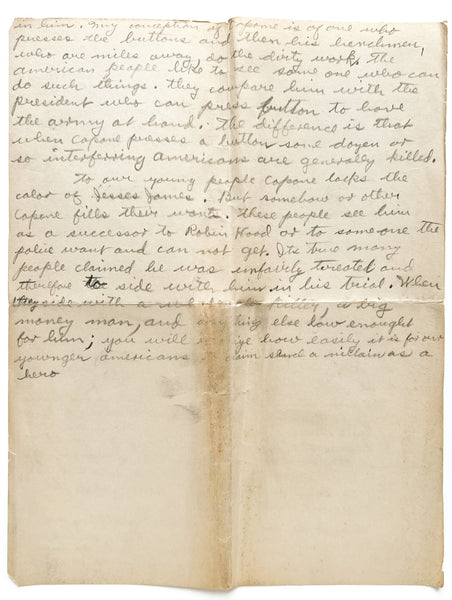 in him. My conception of Capone is of one who
presses the buttons and then his henchmen,
who are miles away, do the dirty work. The
american people like to see some one who can
do such things. they compare him with the
president who can press button to have
the army at hand. The difference is that
when Capone presses a button some dozen or
so interferring americans are generally killed.
To our young people Capone lacks the
color of Jesses James. But somehow or other
Capone fills their wants. These people see him
as a successor to Robin Hood or to someone the
police want and can not get. Its true many
people claimed he was unfairly treated and
therefore to side with him in his trial. When
they side with a a big
money man, and any thing else low enought
for him; you will how easily it is for our
younger americans claim such a villain as a
hero